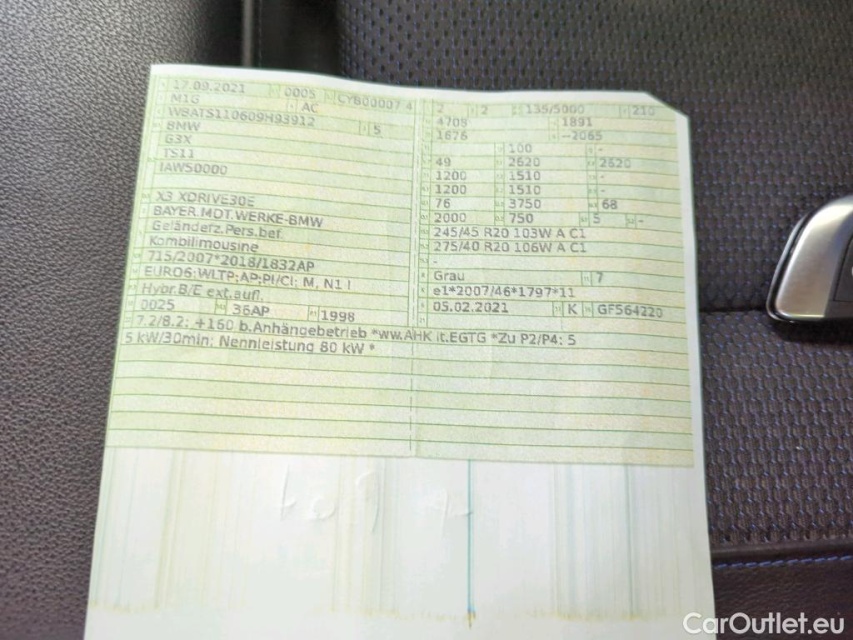 17.09.2021 0005 CYB00007 4
M1G AC
WBATS110609H93912 5
BMW
G3X
TS11
IAW50000
X3 XDRIVE30E
BAYER.MOT.WERKE-BMW
Geländefz.Pers.bef.
Kombilimousine
715/2007*2018/1832AP
EURO6;WLTP;AP;PI/CI; M, N1 I
Hybr.B/E ext.aufl.
0025 36AP 1998
2 2 135/5000 210
4708 1891
1676 --2065
100 -
49 2620 2620
1200 1510 -
1200 1510 -
76 3750 68
2000 750 5 -
245/45 R20 103W A C1
275/40 R20 106W A C1
-
Grau 7
e1*2007/46*1797*11
05.02.2021 K GF564220
7.2/8.2: +160 b.Anhängebetrieb *ww.AHK lt.EGTG *Zu P2/P4: 5
5 kW/30min; Nennleistung 80 kW *
CarOutlet.eu